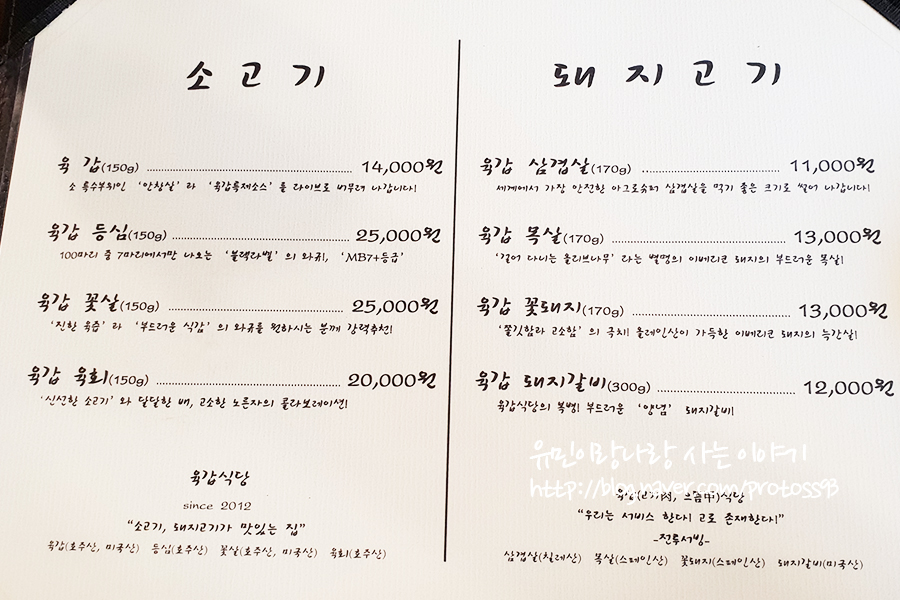 소고기
육 갑(150g) 14,000원
소 특수부위인 '안창살'과 '육갑특제소스'를 라이브로 버무려 나갑니다!
육갑 등심(150g) 25,000원
100마리 중 7마리에서만 나오는 '블랙라벨'의 와규, 'MB7+등급'
육갑 꽃살(150g) 25,000원
'진한 육즙'과 '부드러운 식감'의 와규를 원하시는 분께 강력추천!
육갑 육회(150g) 20,000원
'신선한 소고기'와 달달한 배, 고소한 노른자의 콜라보레이션!
육갑식당
since 2012
"소고기, 돼지고기가 맛있는 집"
육갑(호주산, 미국산) 등심(호주산) 꽃살(호주산, 미국산) 육회(호주산)
돼지고기
육갑 삼겹살(170g) 11,000원
세계에서 가장 안전한 아그로슈퍼 삼겹살을 먹기 좋은 크기로 썰어 나갑니다!
육갑 목살(170g) 13,000원
'걸어 다니는 올리브나무'라는 별명의 이베리코 돼지의 부드러운 목살!
육갑 꽃돼지(170g) 13,000원
'쫄깃함과 고소함'의 극치! 올레인산이 가득한 이베리코 돼지의 늑간살!
육갑 돼지갈비(300g) 12,000원
육갑식당의 복병! 부드러운 '양념' 돼지갈비!
유민이랑나랑 사는 이야기
http://blog.naver.com/protoss93
육갑(고기肉, 으뜸甲)식당
"우리는 서비스 한다! 고로 존재한다!"
-전투서빙-
삼겹살(칠레산) 목살(스페인산) 꽃돼지(스페인산) 돼지갈비(미국산)